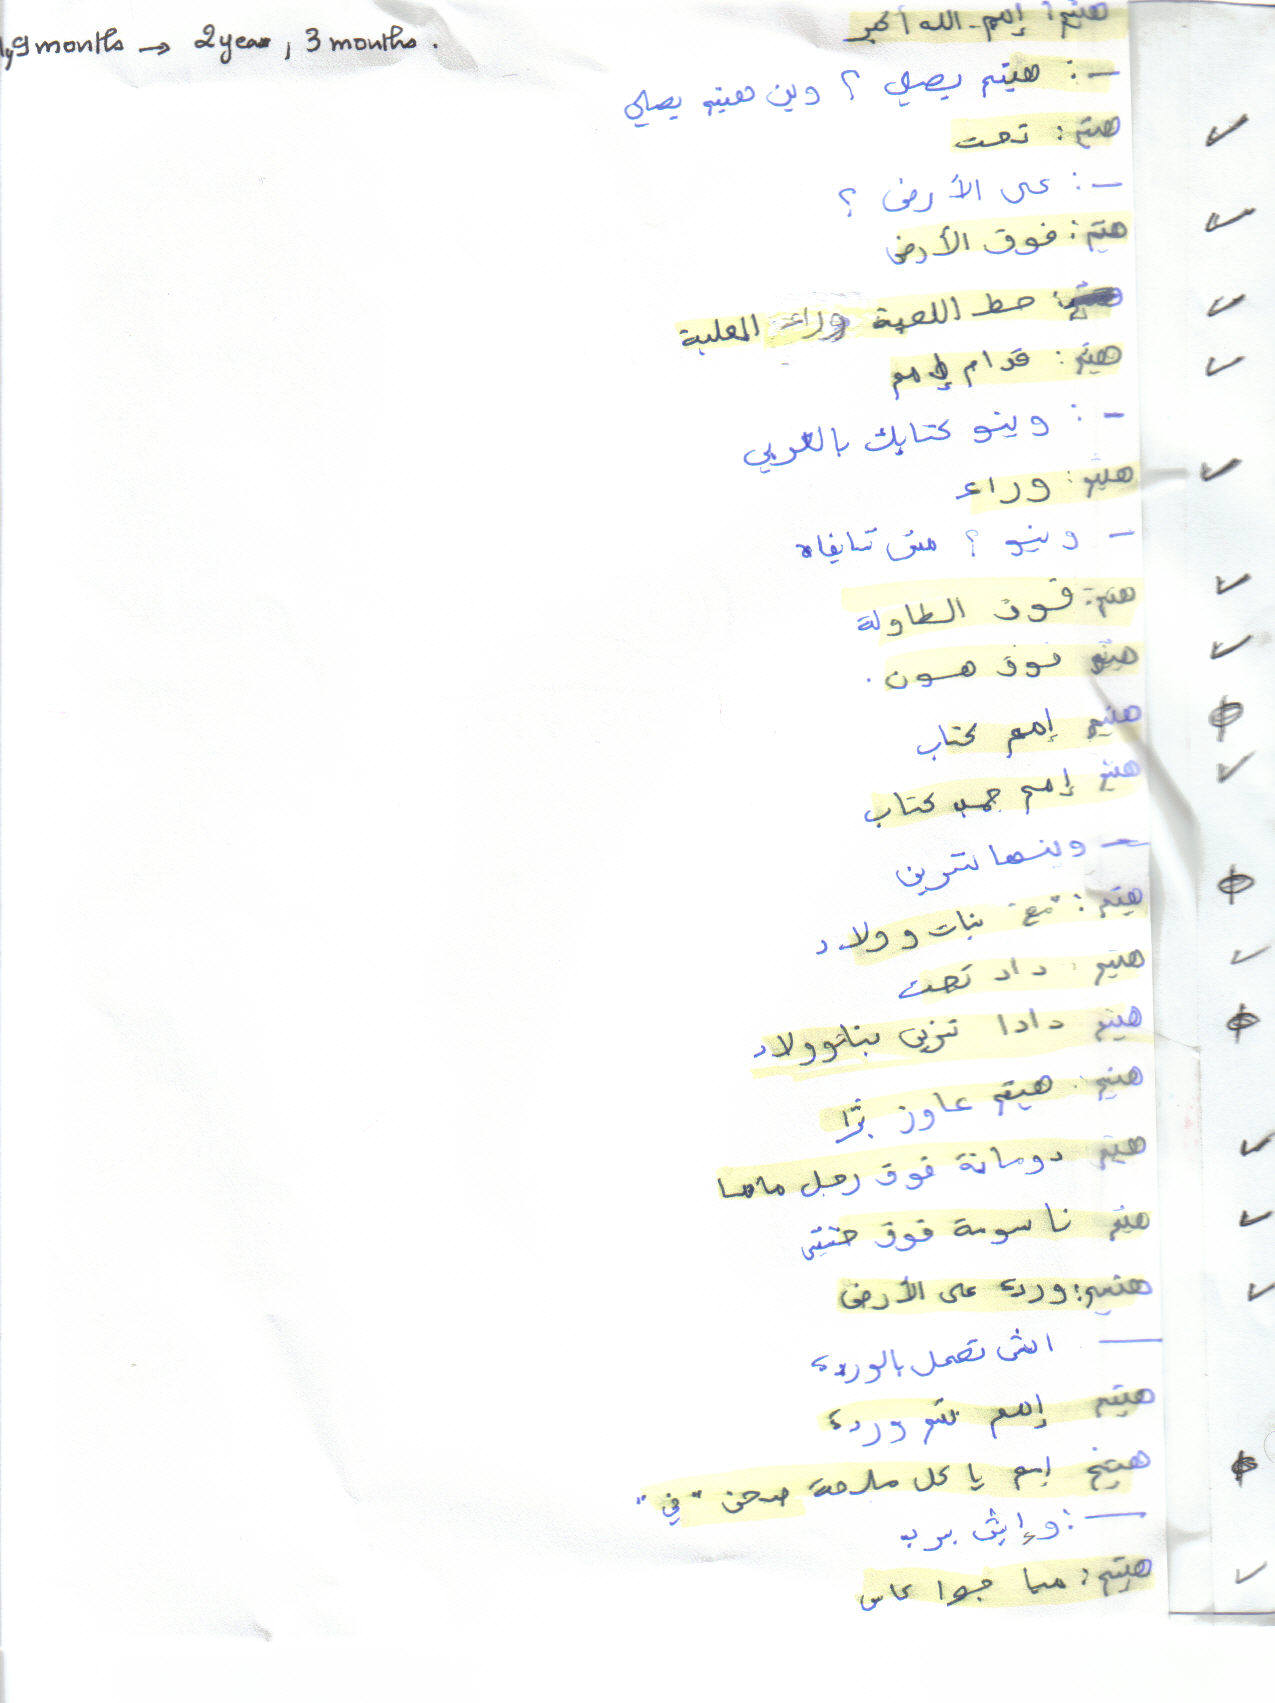 1,9 months → 2 year, 3 months.
هيثم: إمم. الله أكبر
-: هيثم يصلي ؟ وين هيثم يصلي
هيثم: تحت
-: على الأرض ؟
هيثم: فوق الأرض
هيثم: حط اللعبة وراء العلبة
هيثم: قدام إمم
-: وينو كتابك بالعربي
هيثم: وراء
- وينو ؟ مش شايفاه
هيثم: فوق الطاولة
هيثم فوق هون.
هيثم إمم كتاب
هيثم إمم جمب كتاب
- وينها نترين
هيثم: "مع" بنات و ولاد
هيثم. داد تحت
هيثم دادا بنات وولاد
هيثم. هيثم عاوز برّا
هيثم دومانة فوق رجل ماما
هيثم ناسومة فوق
هيثم: وردة على الأرض
— اش تعمل بالوردة
هيثم إمم وردة
هيثم إمم ياكل ملعقة صحن "في"
—: وإيش
هيثم: ميا جوا كاس